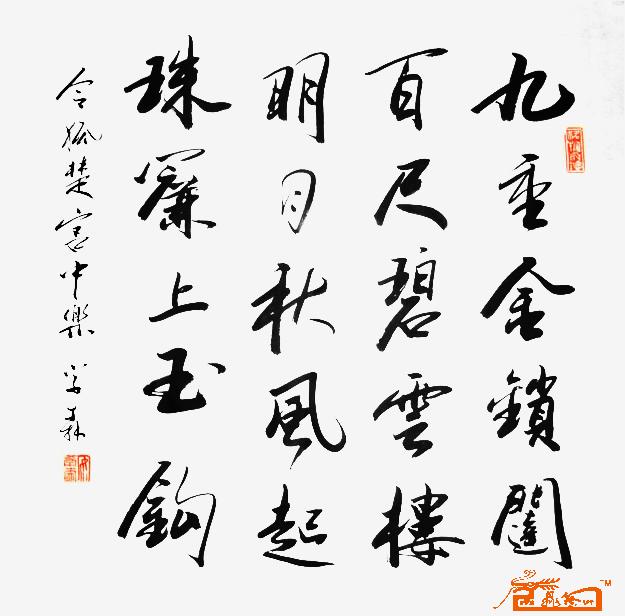 九重金鎖闥
百尺碧雲樓
明月秋風起
珠簾上玉鈎
令狐楚宮中樂